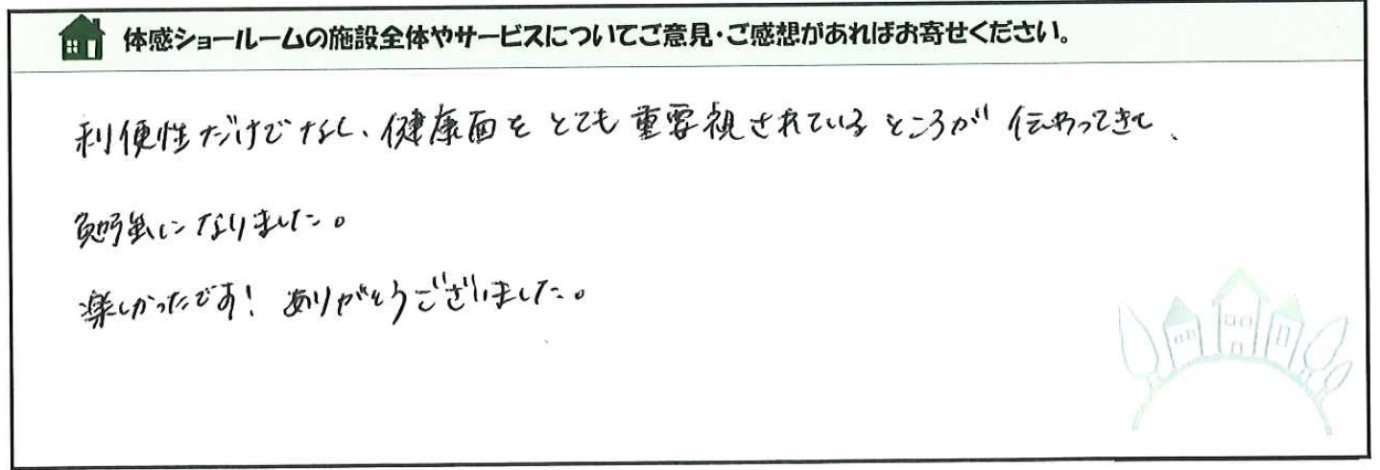 体感ショールームの施設全体やサービスについてご意見・ご感想があればお寄せください。
利便性だけでなく、健康面をとても重要視されているところが伝わってきて、
勉強になりました。
楽しかったです！ありがとうございました。